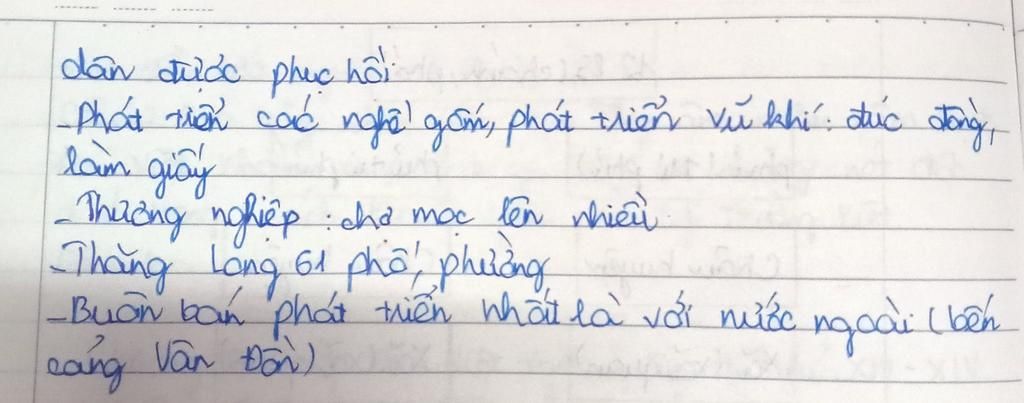 dân được phục hồi
- Phát triển các nghề gốm, phát triển vũ khí: đúc đồng,
làm giấy
- Thương nghiệp: chợ mọc lên nhiều
- Thăng Long 61 phố, phường
- Buôn bán phát triển nhất là với nước ngoài (bến
cảng Vân Đồn)